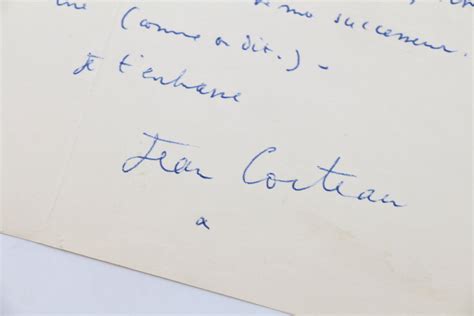 mo successeur.
(comme on dit.) —
Je t'embrasse
Jean Cocteau